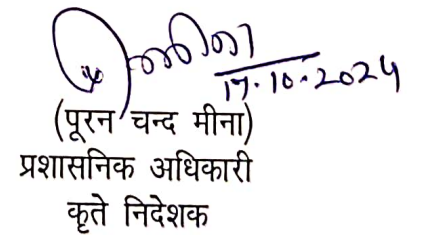 17.10.2024
(पूरन चन्द मीना)
प्रशासनिक अधिकारी
कृते निदेशक